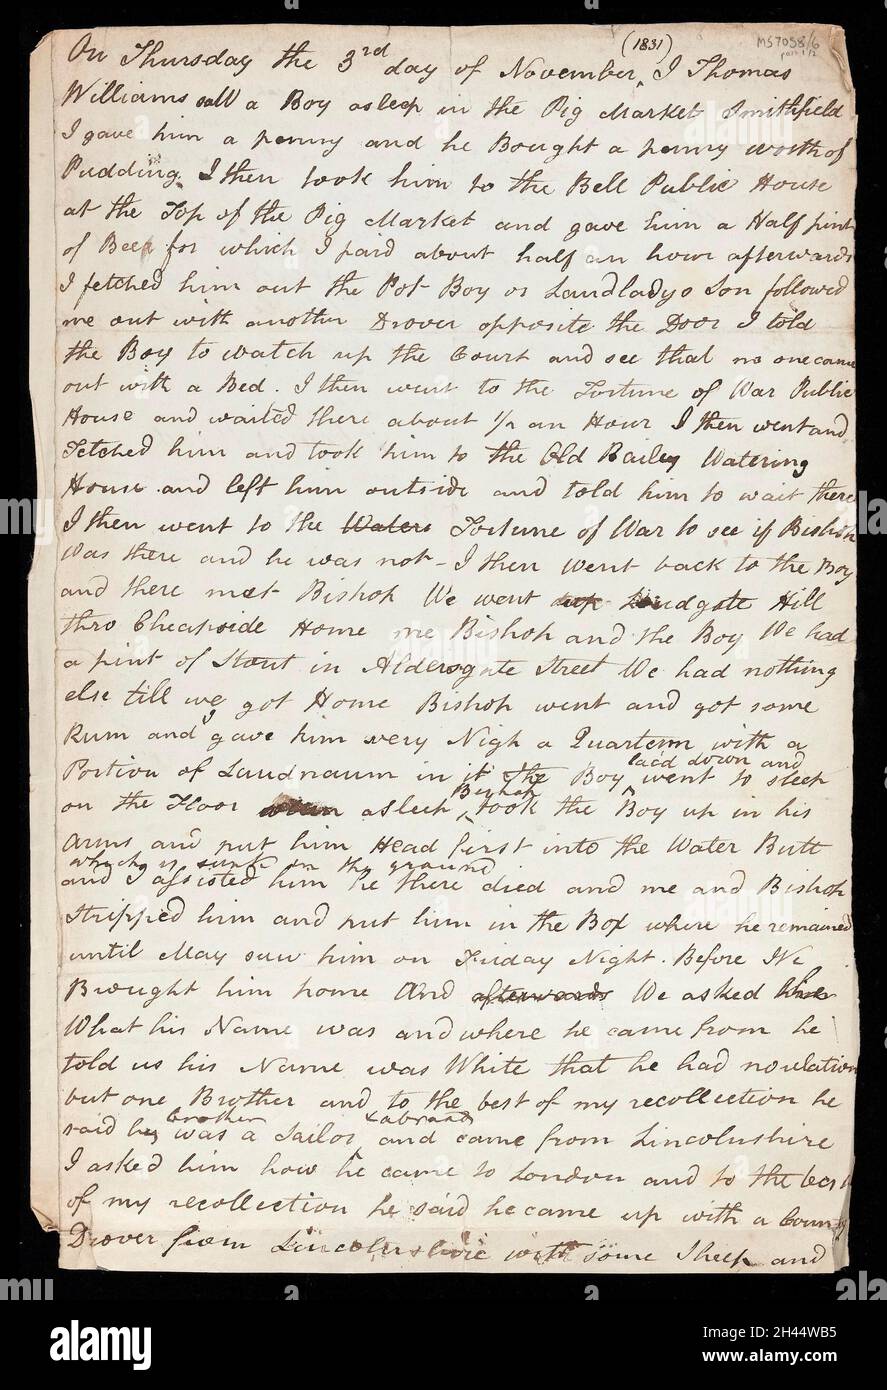 (1831)
MS7058/6
part 1/2
On Thursday the 3rd day of November, I Thomas
Williams saw a Boy asleep in the Pig Market Smithfield
I gave him a penny and he Bought a penny worth of
Pudding. I then took him to the Bell Public House
at the Top of the Pig Market and gave him a Half pint
of Beer for which I paid about half an hour afterwards
I fetched him out the Pot Boy or Landladys Son followed
me out with another Drover opposite the Door I told
the Boy to watch up the Court and see that no one came
out with a Bed. I then went to the Fortune of War Public
House and waited there about 1/2 an Hour I then went and
Fetched him and took him to the Old Bailey Watering
House and left him outside and told him to wait there
I then went to the Waters Fortune of War to see if Bishop
was there and he was not - I then went back to the Boy
and there met Bishop We went up Loudgate Hill
thro Cheapside Home me Bishop and the Boy We had
a pint of Stout in Aldersgate Street We had nothing
else till we got Home Bishop went and got some
Rum and I gave him very Nigh a Quartern with a
Portion of Laudnaum in it The Boy laid down and went to sleep
on the Floor asleep Bishop took the Boy up in his
arms and put him Head first into the Water Butt
which is sunk in the ground
and I assisted him he there died and me and Bishop
Stripped him and put him in the Box where he remained
until May saw him on Friday Night. Before We
Brought him home And afterwards We asked him
What his Name was and where he came from he
told us his Name was White that he had no relation
but one Brother and to the best of my recollection he
said his brother was a Sailor abroad and came from Lincolnshire
I asked him how he came to London and to the best
of my recollection he said he came up with a Country
Drover from Lincolnshire with some Sheep and
alamy
Image ID: 2H44WB5
www.alamy.com